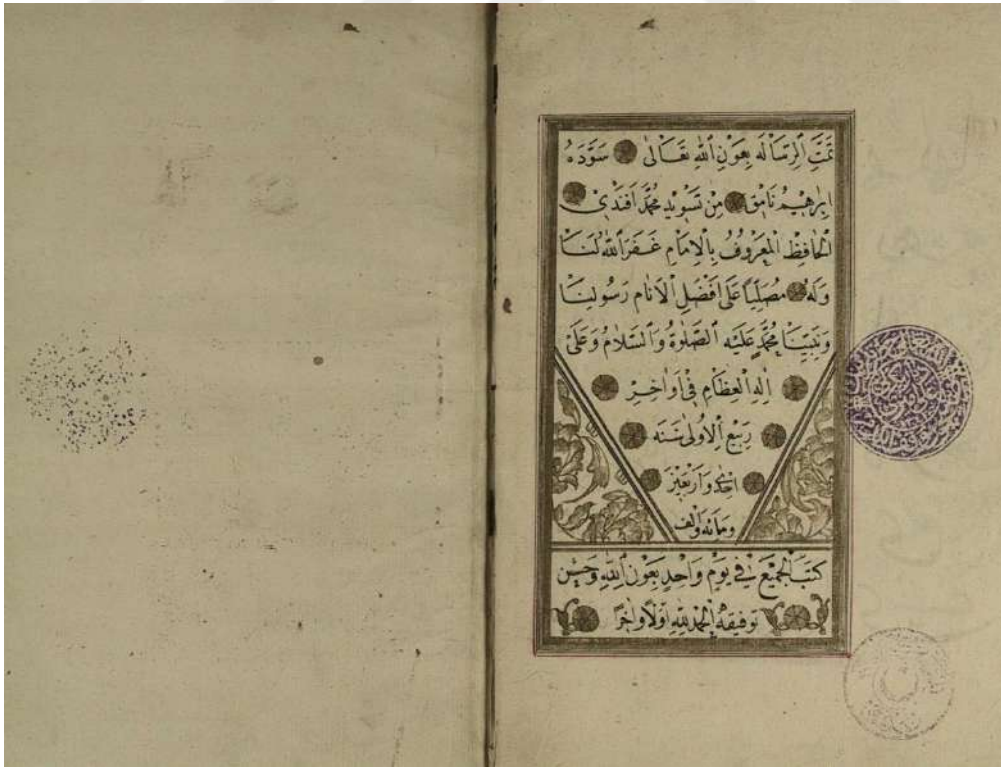 تَمَّتِ ٱلرِّسَالَه بِعَوْنِ ٱللّٰهِ تَعَالٰى سَوَّدَهُ
اِبْرٰهِيْمُ نَامِق مِنْ تَسْوِيْدِ مُحَمَّد اَفَنْدِيْ
ٱلْحَافِظْ ٱلْمَعْرُوْفُ بِالْاِمَامِ غَفَرَ ٱللّٰهُ لَنَا
وَلَهُ مُصَلِّيًا عَلَى اَفْضَلِ ٱلْاَنَامِ رَسُوْلِنَا
وَنَبِيِّنَا مُحَمَّدٍ عَلَيْهِ ٱلصَّلٰوةُ وَٱلسَّلَامُ وَعَلَى
اٰلِهِ ٱلْعِظَامِ فِيْ اَوَاخِرِ
رَبِيْعِ ٱلْاُوْلٰى سَنَه
اِحْدٰى وَاَرْبَعِيْنَ
وَمِائَه وَاَلْف
كَتَبَ ٱلْجَمِيْعَ فِيْ يَوْمٍ وَاحِدٍ بِعَوْنِ ٱللّٰهِ وَحُسْنِ
تَوْفِيْقِهِ ٱلْحَمْدُ لِلّٰهِ اَوَّلًا وَاٰخِرًا